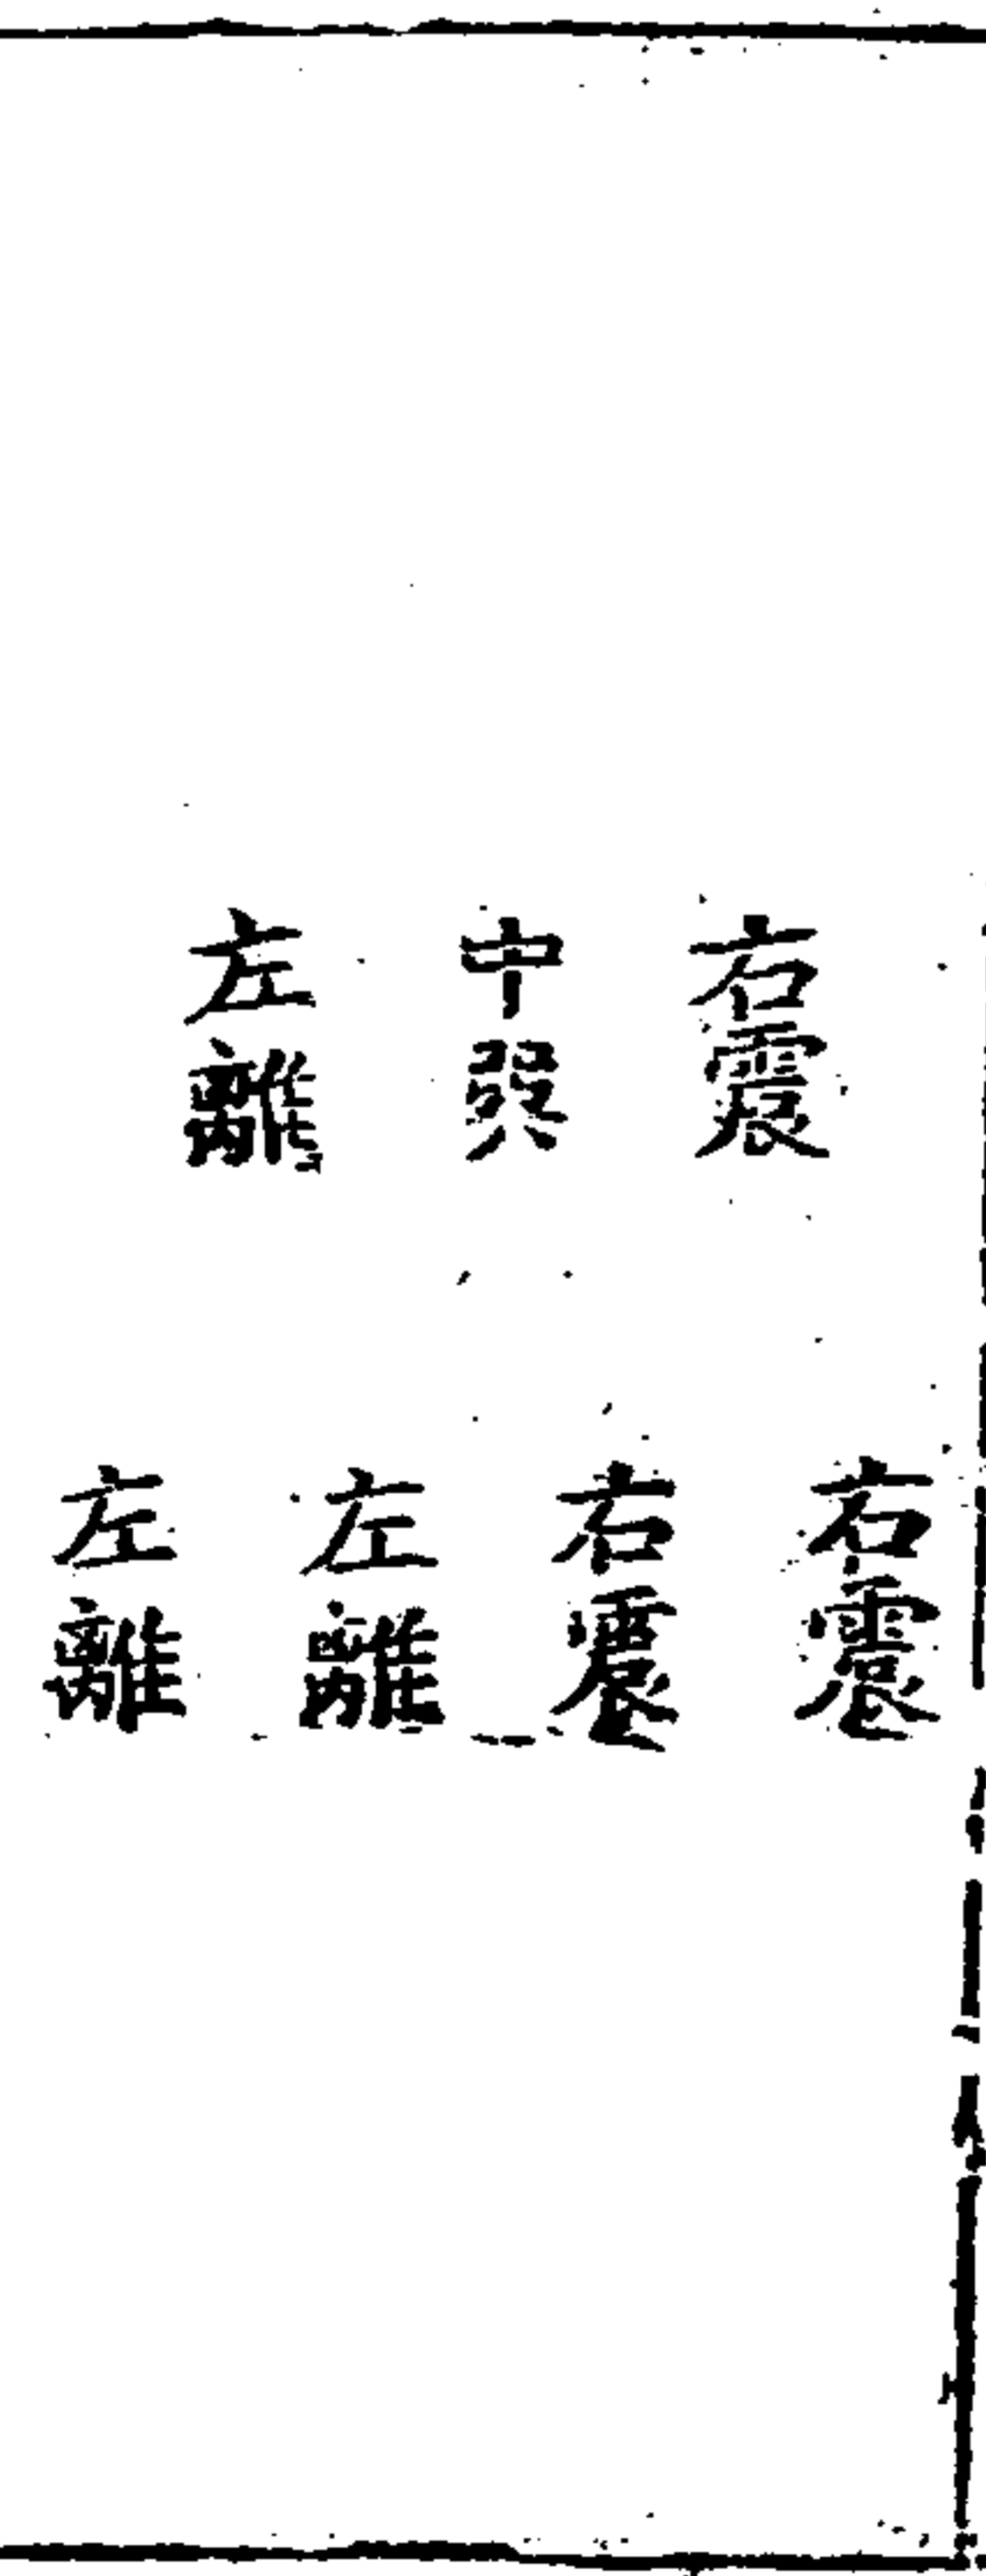 右震
中巽
左離
右震
右震
左離
左離